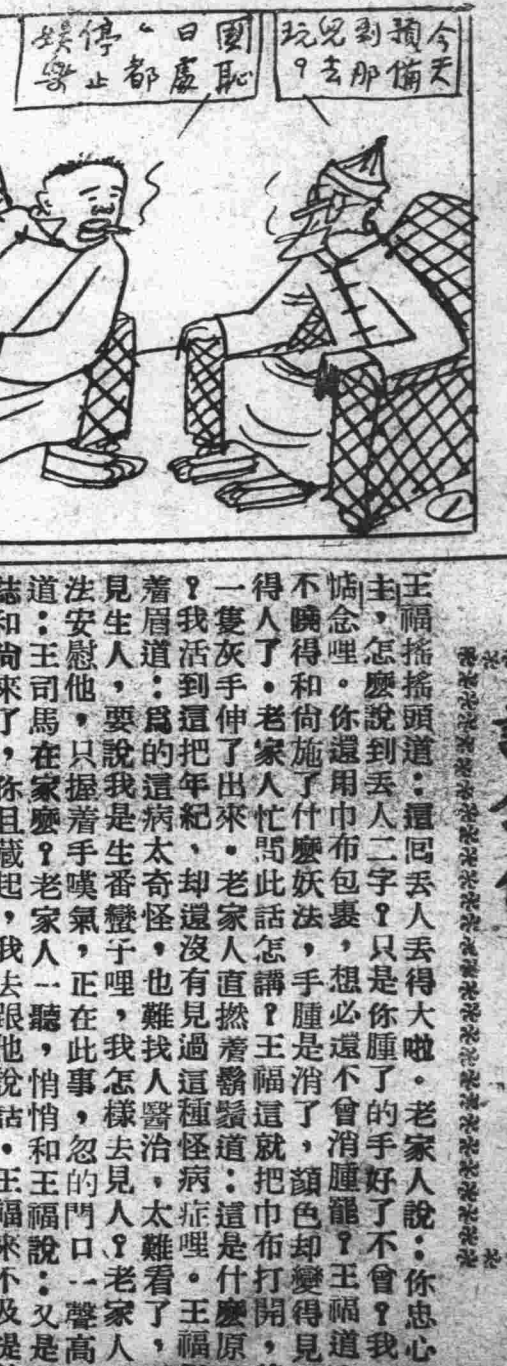 今天
預備
到那
兒去
玩?
國恥
日處
、都
停止
娛樂
1
王福搖搖頭道:這回丟人丟得大啦。老家人說:你忠心
主,怎麽說到丟人二字?只是你腫了的手好了不曾?我
惦念哩。你還用巾布包裹,想必還不曾消腫罷?王福道
不曉得和尙施了什麽妖法,手腫是消了,顏色却變得見
得人了。老家人忙問此話怎講?王福這就把巾布打開,
一隻灰手伸了出來。老家人直撚着鬍鬚道:這是什麽原
?我活到這把年紀、却還沒有見過這種怪病症哩。王福
着眉道:爲的這病太奇怪,也難找人醫治,太難看了,
見生人,要說我是生番蠻子哩,我怎樣去見人?老家人
法安慰他,只握着手嘆氣,正在此事,忽的門口一聲高
道:王司馬在家麽?老家人一聽,悄悄和王福說:又是
誌和尙來了,你且藏起,我去跟他說話。王福來不及提